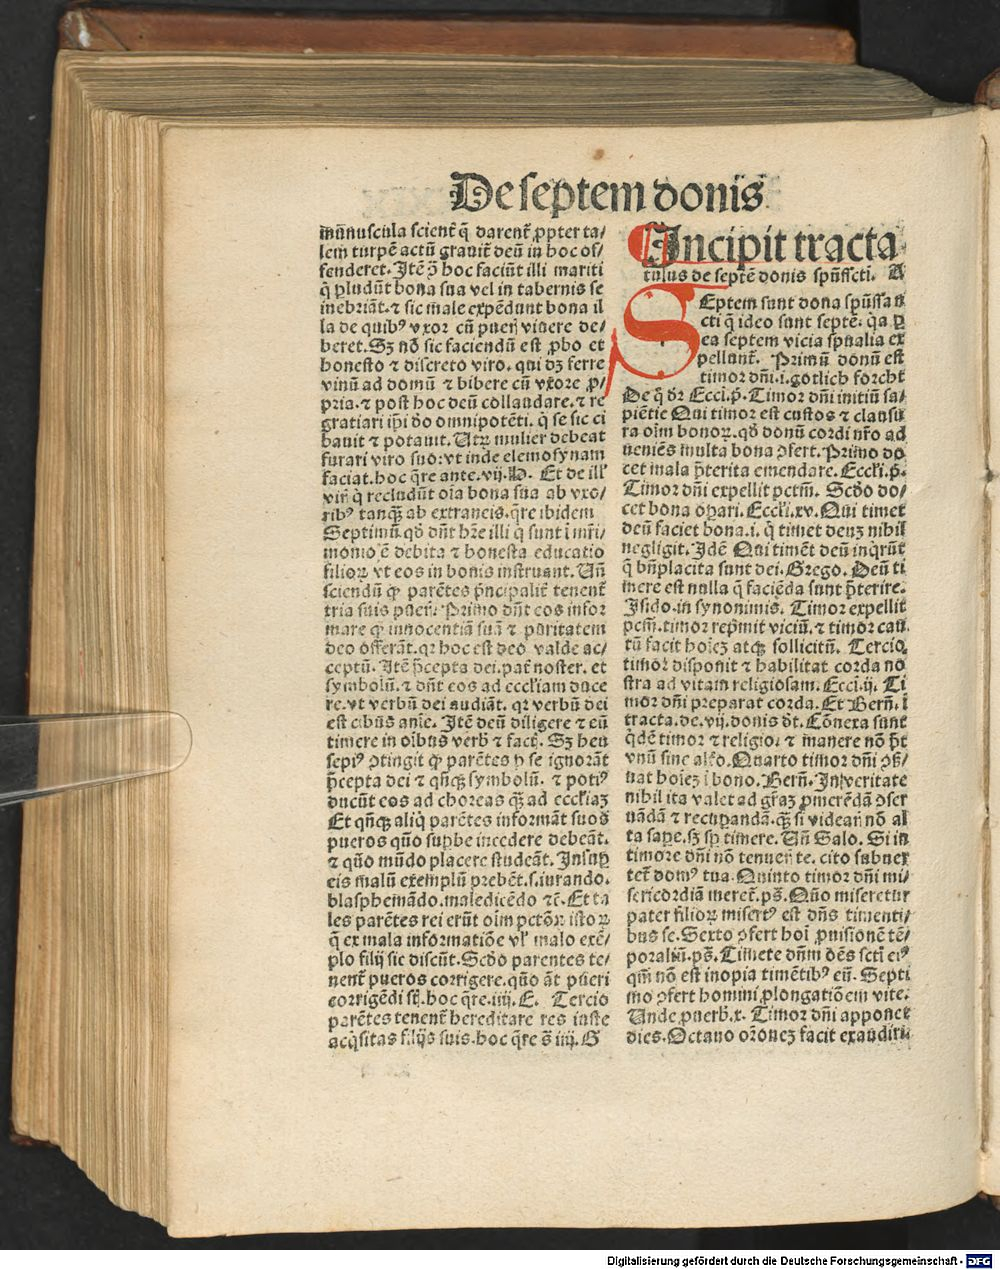 De septem donis
munuscula scient̄ q̄ darent̄ ꝓpter ta/
lem turpē actū grauit̄ deū in hoc of/
fenderet. Itē ꝯ̄ hoc faciūt illi mariti
q̄ ꝑludūt bona sua vel in tabernis se
inebriāt. ⁊ sic male expēdunt bona il
la de quibꝰ vxor cū puer̄ viuere de/
beret. Sꝫ nō sic faciendū est ꝓbo et
honesto ⁊ discreto viro. qui dꝫ ferre
vinū ad domū ⁊ bibere cū vxore ꝓ/
pria. ⁊ post hoc deū collaudare. ⁊ re
gratiari ip̄i dō omnipotēti. q̄ se sic ci
bauit ⁊ potauit. Utꝝ mulier debeat
furari viro suo: vt inde elemosynam
faciat. hoc q̄re ante. vij. D. Et de ill̄
vir̄ q̄ recludūt oīa bona sua ab vxo/
ribꝰ tanꝙ̄ ab extraneis. q̄re ibidem
Septimū. qd̄ dn̄t hr̄e illi q̄ sunt ī mr̄i/
monio ē debita ⁊ honesta educatio
filioꝝ vt eos in bonis instruant. Un̄
sciendū ꝙ parētes pͥncipalit̄ tenent̄
tria suis puer̄. Primo dn̄t eos infor
mare ꝙ innocentiā suā ⁊ puritatem
deo offerāt. qꝛ hoc est deo valde ac/
ceptū. Itē p̄cepta dei. pat̄ noster. et
symbolū. ⁊ dn̄t eos ad eccl̄iam duce
re. vt verbū dei audiāt. qꝛ verbū dei
est cibus aīe. Itē deū diligere ⁊ eū
timere in oībus verb̄ ⁊ fact̄. Sꝫ heu
sepiꝰ ꝯtingit ꝙ parētes hͥ se ignorāt
p̄cepta dei ⁊ qn̄qꝫ symbolū. ⁊ potiꝰ
ducūt eos ad choreas ꝙ̄ ad eccl̄iaꝫ
Et qn̄qꝫ aliq̄ parētes informāt suos
pueros quō sup̄be incedere debeāt.
⁊ quō mūdo placere studeāt. Insuꝑ
eis malū exemplū prebēt. s. iurando.
blasphemādo. maledicēdo ⁊c̄. Et ta
les parētes rei erūt oīm pctōꝝ istoꝝ
q̄ ex mala informatiōe vl̓ malo exē/
plo filij sic discūt. Scd̄o parentes te/
nent̄ pueros corrigere. quō āt pueri
corrigēdi sī. hoc q̄re. iiij. E. Tercio
parētes tenent̄ hereditare res iuste
acq̄sitas filijs suis. hoc q̄re s̄ iiij. G
Incipit tracta
tulus de septē donis spūssctī. A
SEptem sunt dona spūssan
cti q̄ ideo sunt septē. qꝛ ꝑ
ea septem vicia spūalia ex
pellunt̄. Primū donū est
timor dn̄i. i. gotlich forcht
De q̄ dr̄ Ecci. pͥ. Timor dn̄i initiū sa/
piētie Qui timor est custos ⁊ clausu
ra oīm bonoꝝ. qd̄ donū cordi nr̄o ad
ueniēs multa bona ꝯfert. Primo do
cet mala p̄terita emendare. Eccl̄i. pͥ.
Timor dn̄i expellit pctm̄. Scd̄o do/
cet bona oꝑari. Eccl̄i. xv. Qui timet
deū faciet bona. i. q̄ timet deuꝫ nihil
negligit. Idē Qui timēt deū inq̄rūt
q̄ bn̄placita sunt dei. Grego. Deū ti
mere est nulla q̄ faciēda sunt p̄terire.
Isido. in synonimis. Timor expellit
pctm̄. timor repͥmit viciū. ⁊ timor cau
tū facit hoīeꝫ atqꝫ sollicitū. Tercio
timor disponit ⁊ habilitat corda no
stra ad vitam religiosam. Ecci. ij. Ti
mor dn̄i preparat corda. Et Bern̄. ī
tracta. de. vij. donis dt̄. Cōnexa sunt
q̄dē timor ⁊ religio. ⁊ manere nō pn̄t
vnū sine alt̄o. Quarto timor dn̄i ꝯẞ/
uat hoīeꝫ ī bono. Bern̄. In veritate
nihil ita valet ad gr̄aꝫ ꝓmerēdā ꝯser
uādā ⁊ recuꝑandā. ꝙ̄ si videar̄ nō al
ta saꝑe. sꝫ sꝑ timere. Un̄ Salo. Si in
timore dn̄i nō tenuer̄ te. cito subuer
tet̄ domꝰ tua. Quinto timor dn̄i mi/
sericordiā meret̄. ps̄. Quō miseretur
pater filioꝝ misert̄ꝰ est dn̄s timenti/
bus se. Sexto ꝯfert hoī ꝓuisionē tē/
poraliū. ps̄. Timete dn̄m ōēs sctī eiꝰ
qm̄ nō est inopia timētibꝰ eū. Septi
mo ꝯfert homini ꝓlongatiōem vite.
Unde ꝓuerb̄. x. Timor dn̄i apponet
dies. Octauo or̄oneꝫ facit exaudiri.
Digitalisierung gefördert durch die Deutsche Forschungsgemeinschaft - DFG